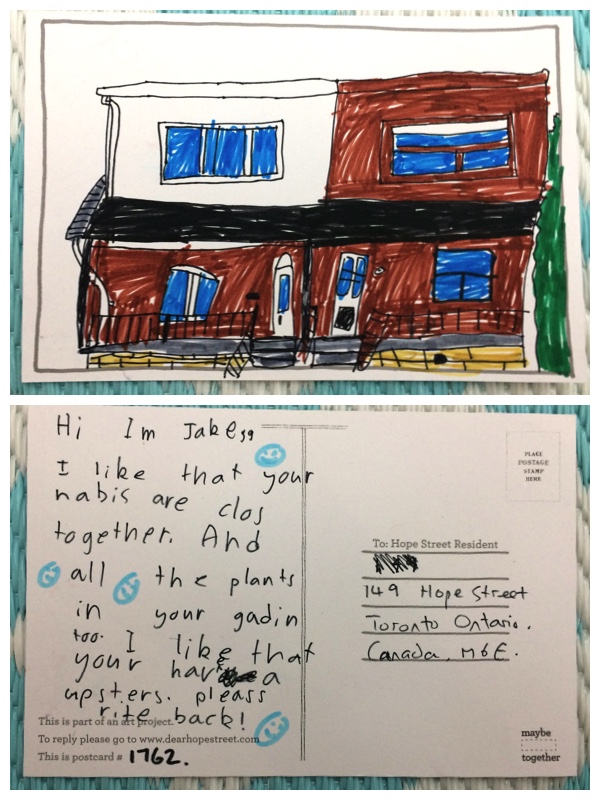 Hi Im Jake
I like that your
nabis are clos
together. And
all the plants
in your gadin
too. I like that
your have a
upsters. pleass
rite back!
This is part of an art project.
To reply please go to www.dearhopestreet.com
This is postcard # 1762.
PLACE
POSTAGE
STAMP
HERE
To: Hope Street Resident
149 Hope Street
Toronto Ontario.
Canada, M6E.
maybe
together